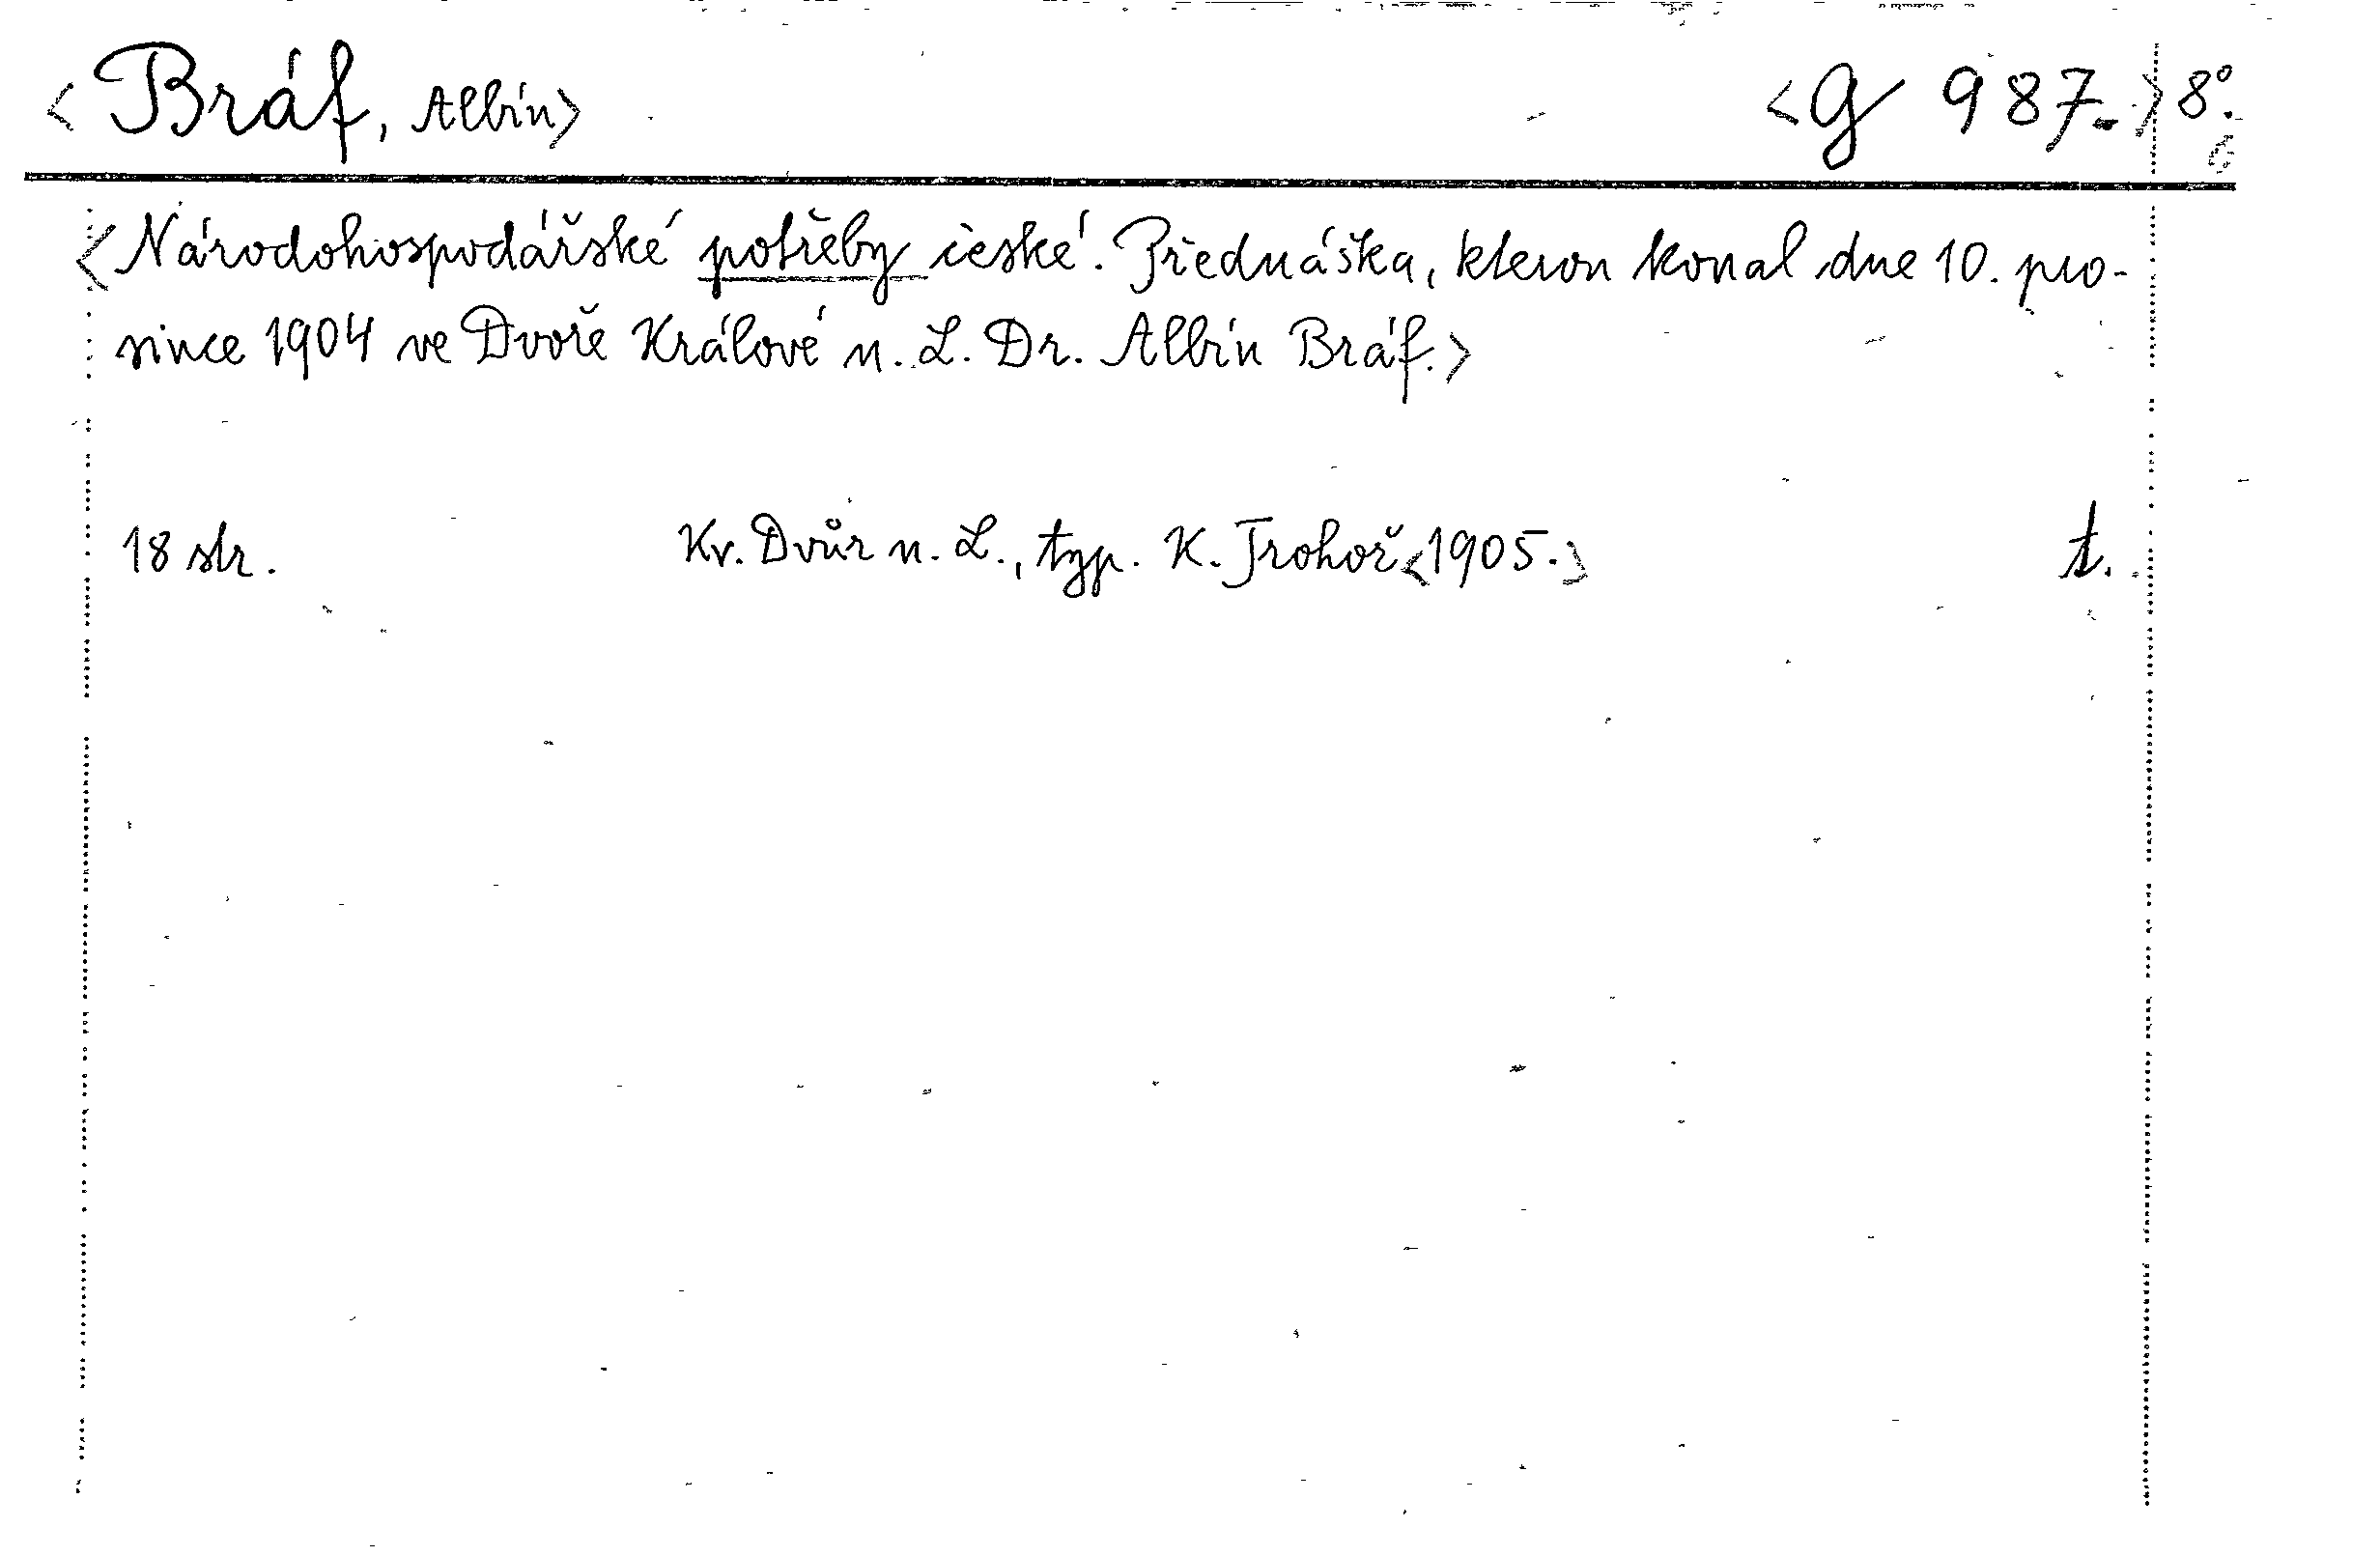 <Bráf, Albín> <g 987.> 8°.
<Národohospodářské potřeby české. Přednáška, kterou konal dne 10. pro-
since 1904 ve Dvoře Králové n. L. Dr. Albín Bráf.>
18 str. Kr. Dvůr n. L., typ. K. Trohoř <1905.> t.